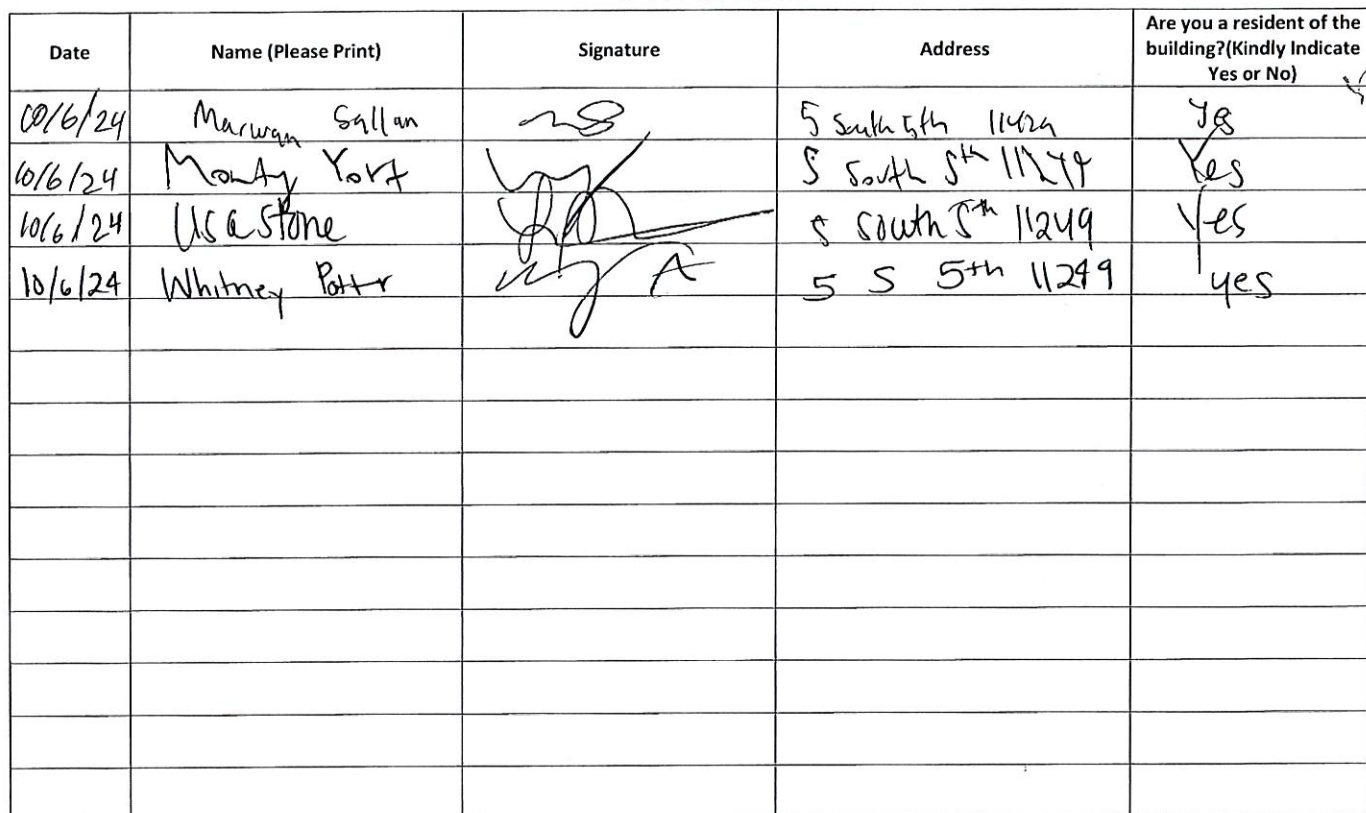 Date Name (Please Print) Signature Address Are you a resident of the building?(Kindly Indicate Yes or No)
10/6/24 Marwan Sallan 5 South 5th Yes
10/6/24 Monty York 5 South 5th 11249 Yes
10/6/24 Lisa Stone 5 South 5th 11249 Yes
10/6/24 Whitney Potter 5 S 5th 11249 yes